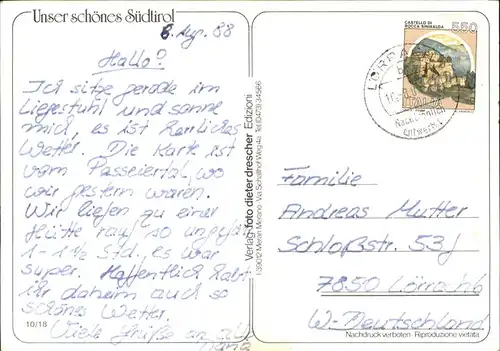 Unser schönes Südtirol
8. Aug. 88
Hallo?
Ich sitze gerade im
Liegestuhl und sonne
mich, es ist herrliches
Wetter. Die Karte ist
vom Passeiertal, wo
wir gestern waren.
Wir liefen zu einer
Hütte rauf so ungefähr
1 - 1 1/2 Std, es war
super. Hoffentlich habt
ihr daheim auch so
schönes Wetter.
Viele Grüße an alle
10/18
Verlag foto dieter drescher Edizioni
I-39012 Meran Merano · Via Schallhof Weg 4a · Tel. (0473) 34566
CASTELLO DI
ROCCA SINIBALDA
550
LÖRRACH
Familie
Andreas Mutter
Schloßstr. 53
7850 Lörrach
W-Deutschland
Nachdruck verboten · Riproduzione vietata